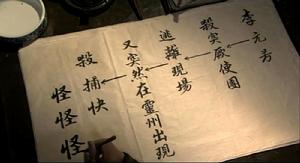 李元芳
殺突厥使團
逃離現場
又突然在靈州出現
殺捕快
怪怪怪